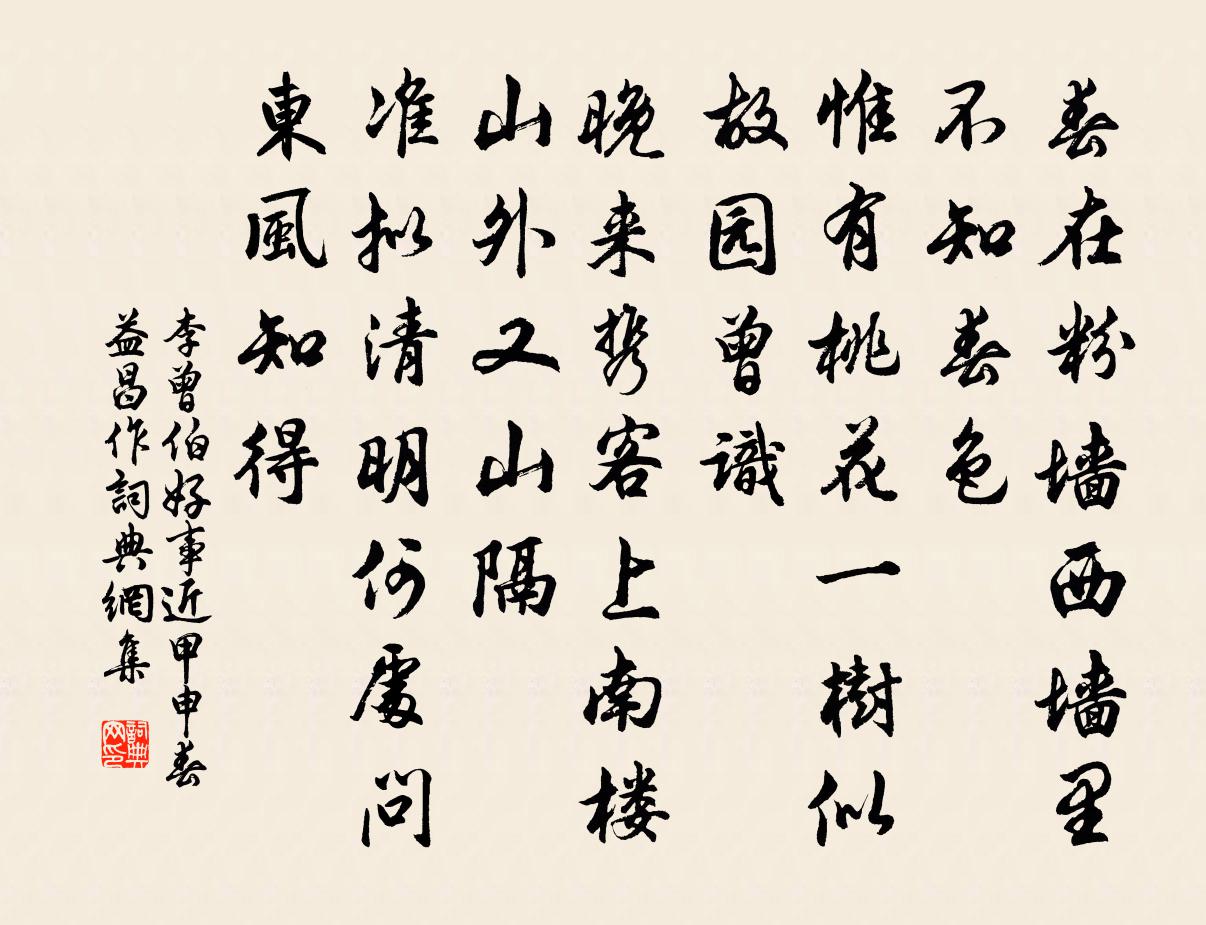 春在粉墙西墙里
不知春色
惟有桃花一樹似
故园曾識
晚来携客上南楼
山外又山隔
准拟清明何處问
東風知得
李曾伯好事近甲申春
益昌作詞典網集
詞典网印